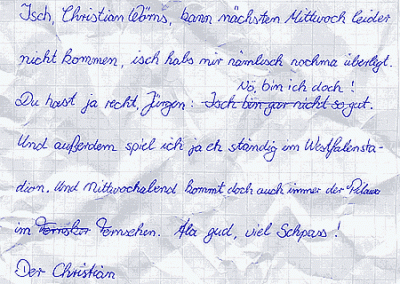 Isch, Christian Wörns, kann nächsten Mittwoch leider
nicht kommen, isch habs mir nämlisch nochma überlegt.
Nö, bin ich doch!
Du hast ja recht, Jürgen: Isch bin gar nicht so gut.
Und außerdem spiel ich ja eh ständig im Westfalensta-
dion. Und Mittwochabend kommt doch auch immer der
im Fernsher Fernsehen. Ala gud, viel Schpass!
Der Christian